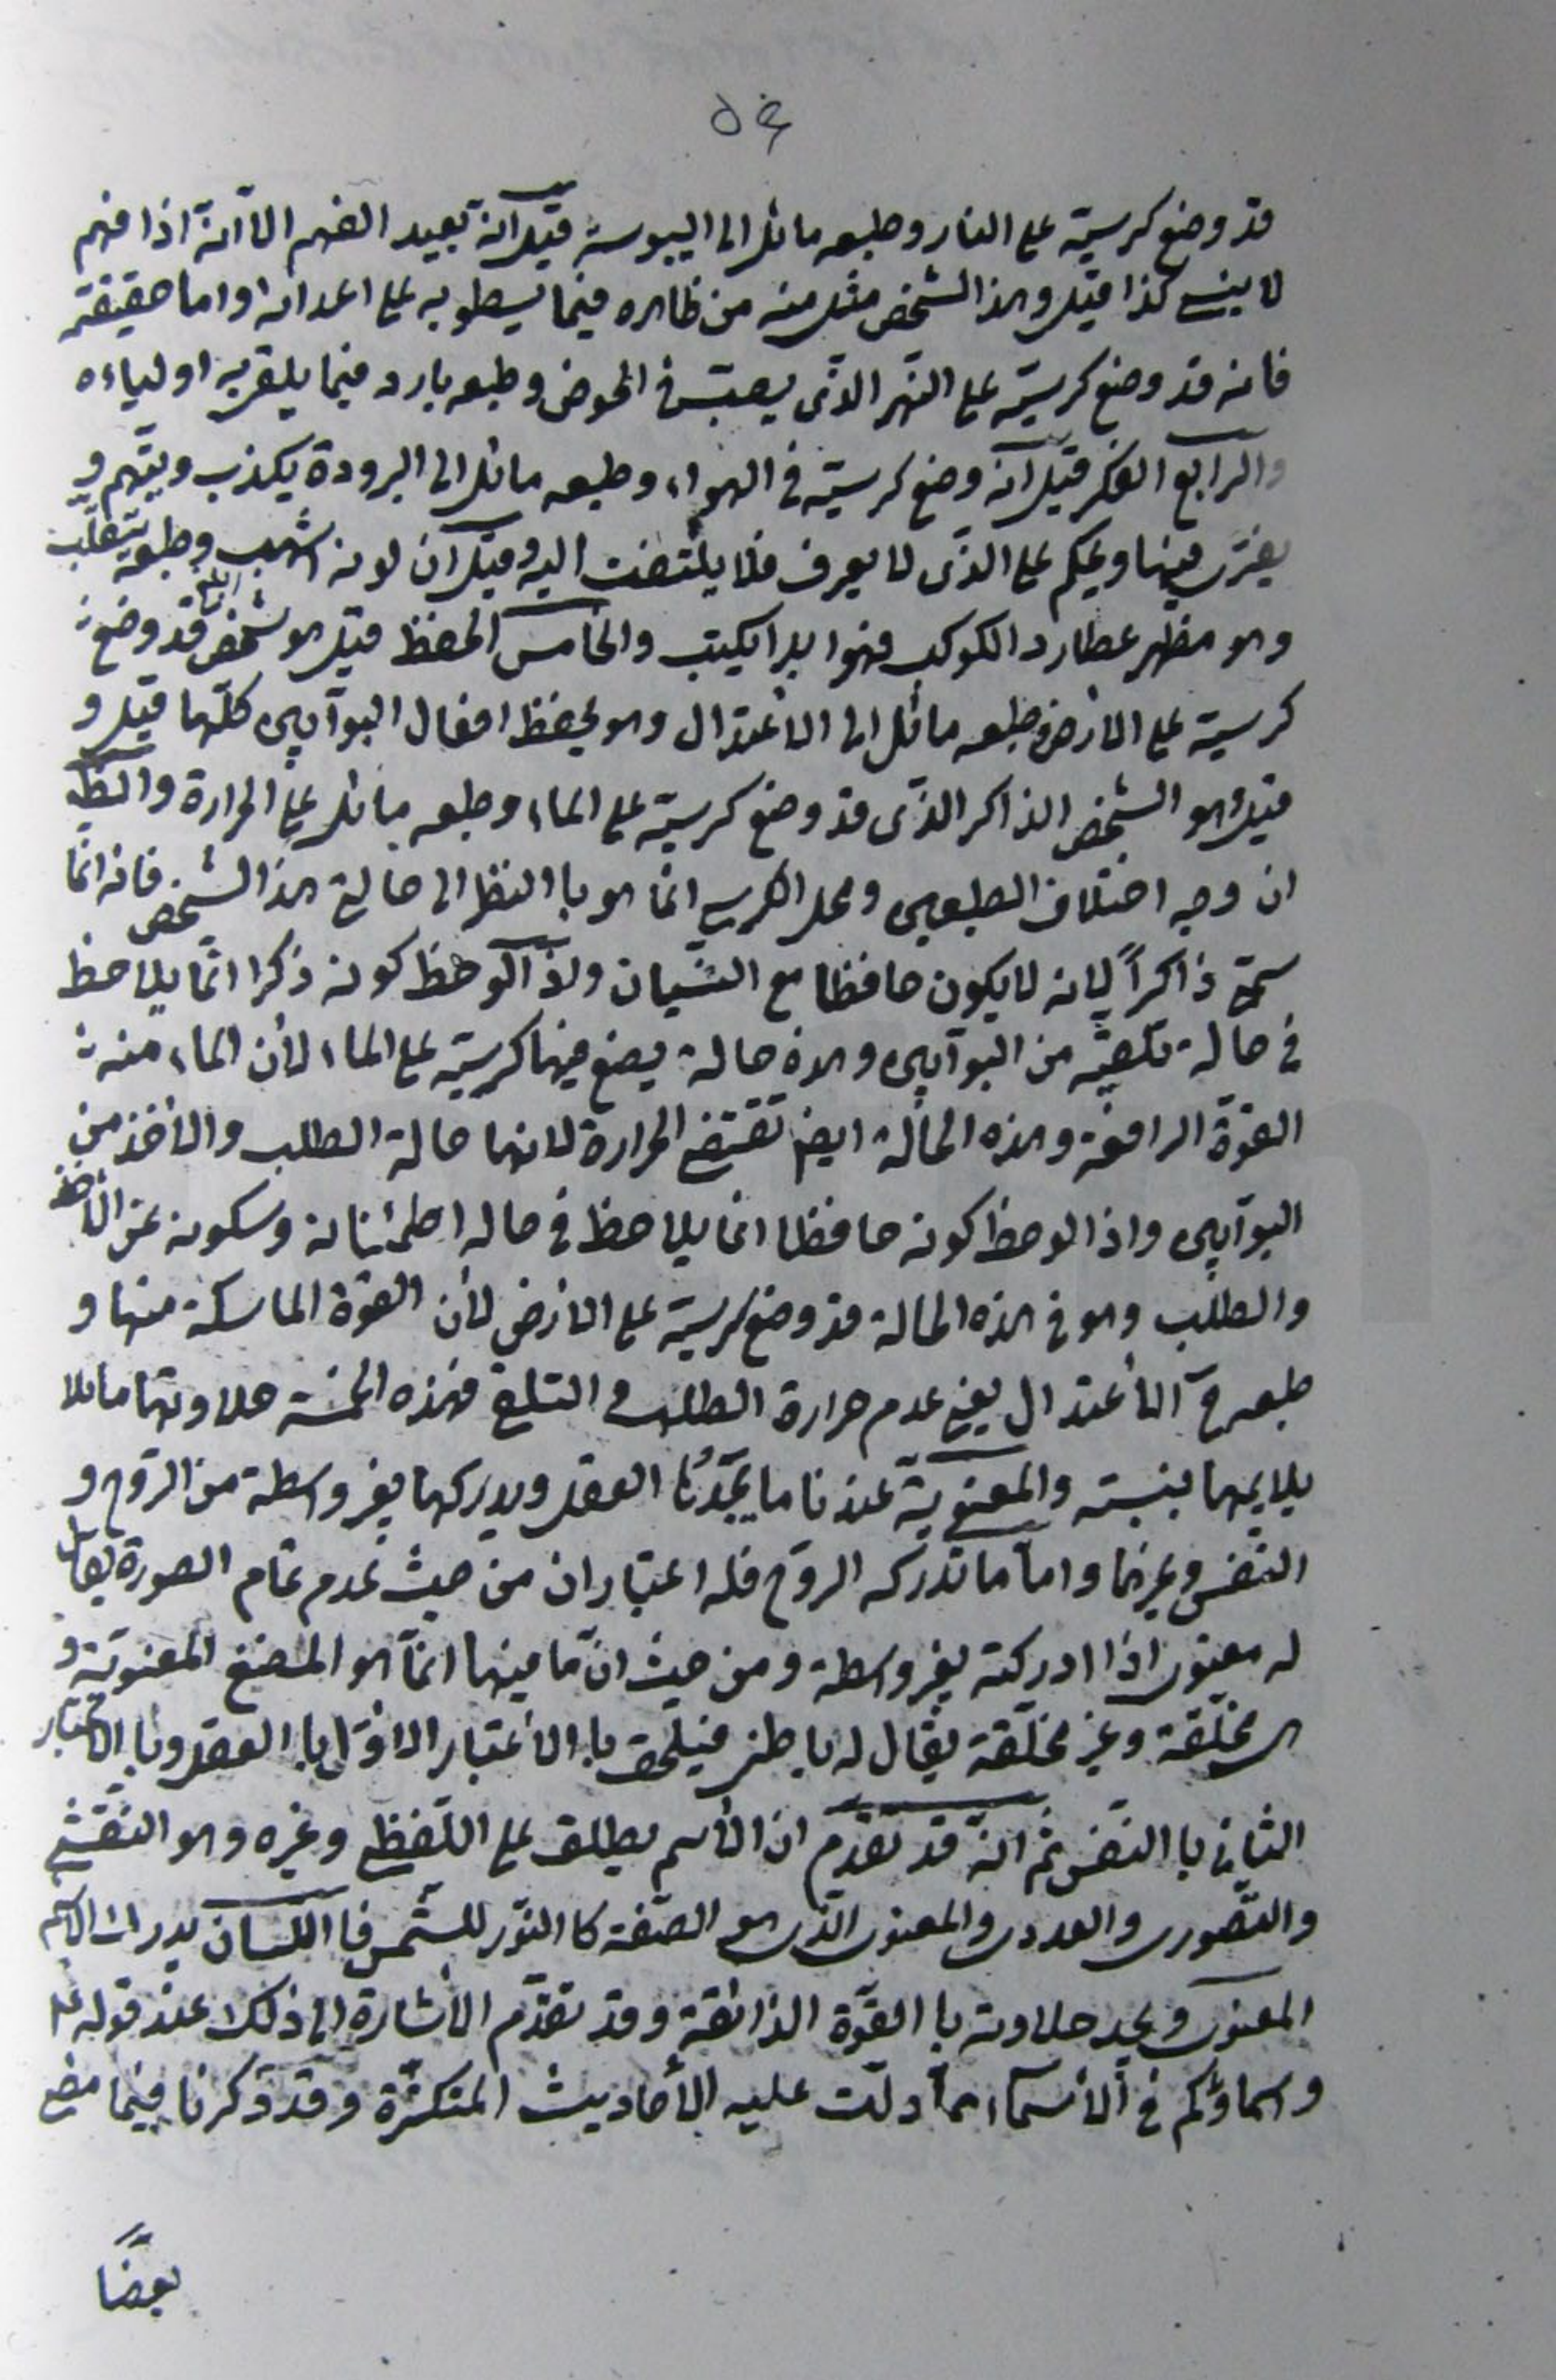 ٥٤
قد وضع كرسيّه على النار وطبعه مائل الى اليبوسة قيل انّه بعيد الفهم الا انّه اذا فهم
لا ينسى كذا قيل وهذا الشخص مثل منه من ظاهره فيما يسطو به على اعدائه واما حقيقته
فانه قد وضع كرسيّه على النهر الذى يصبّ فى الحوض وطبعه بارد فيما يلقى به اولياءه
والرابع الفكر قيل انّه وضع كرسيّه فى الهواء وطبعه مائل الى البرودة يكذب ويتّهم و
يفترى فيها ويحكم على الذى لا يعرف فلا يلتفت اليه وقيل ان لونه اشهب وطبعه يتقلّب
وهو مظهر عطارد الكوكب فهو ابدا يكتب والخامس الحفظ قيل هو شخص قد وضع
كرسيّه على الأرض وطبعه مائل الى الأعتدال وهو يحفظ افعال البوّابين كلّها قيل و
قيل هو الشخص الذاكر الذى قد وضع كرسيّه على الماء وطبعه مائل على الحرارة والظ
ان وجه اختلاف الطبعين ومحل الكرسى انما هو باالنظر الى حالة هذا الشخص فانه انّما
سمّى ذاكراً لانه لا يكون حافظا مع النّسيان ولذا لوحظ كونه ذكرا انّما يلاحظ
فى حالة تلقيّه من البوّابين وهذه حالة يضع فيها كرسيّه على الماء لأن الماء منه
القوّة الرافعة وهذه الحالة ايضا تقتضى الحرارة لانها حالة الطلب والأخذ من
البوّابين واذا لوحظ كونه حافظا انما يلاحظ فى حاله اطمئنانه وسكونه عن الأخذ
والطّلب وهو فى هذه الحالة قد وضع كرسيّه على الأرض لأن القوة الماسكة منها و
طبعه ح الأعتدال يعنى عدم حرارة الطلب و التلقى فهذه الخمسة حلاوتها ما
يلايمها بنسبته والمعنويّة عندنا ما يجدها العقل ويدركها بغير واسطة من الروح و
النّفس وغيرهما وامّا ما تدركه الروح فله اعتباران من حيث عدم تمام الصورة يقال
له معنوى اذا ادركته بغير واسطة ومن حيث انّ ما فيها انّما هو المضغ المعنويّة و
هى مخلّقة وغير مخلّقة يقال له باطنى فيلحق باالأعتبار الاوّل باالعقل وباالأعتبار
الثانى باالنّفس ثم انّه قد تقدّم ان الأسم يطلق على اللّفظى وغيره وهو النّقشى
والتّصورى والعددى والمعنوى الّذى هو الصّفة كاالنّور للشّمس فااللّسان يدرك الاسم
المعنوى ويجد حلاوته باالقوّة الذائقة وقد تقدّم الأشارة الى ذلك عند قوله ع
واسماؤكم فى الأسماء مما دلّت عليه الأحاديث المتكثّرة وقد ذكرنا فيما مضى
بعضًا